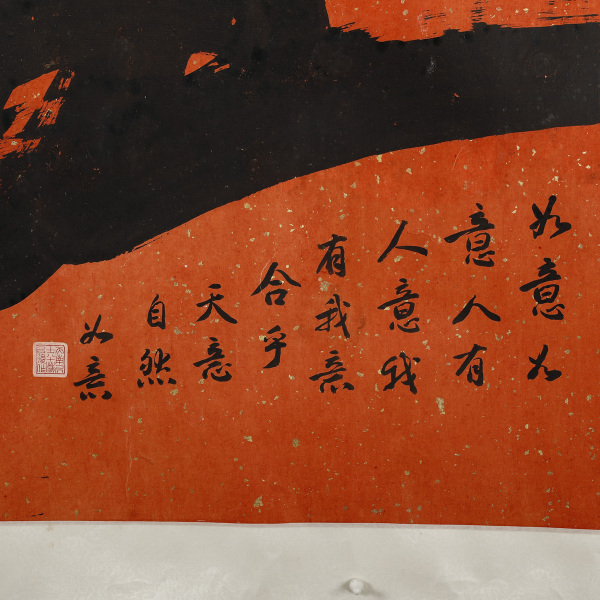 如意如
意人有
人意我
有我意
合乎
天意
自然
如意